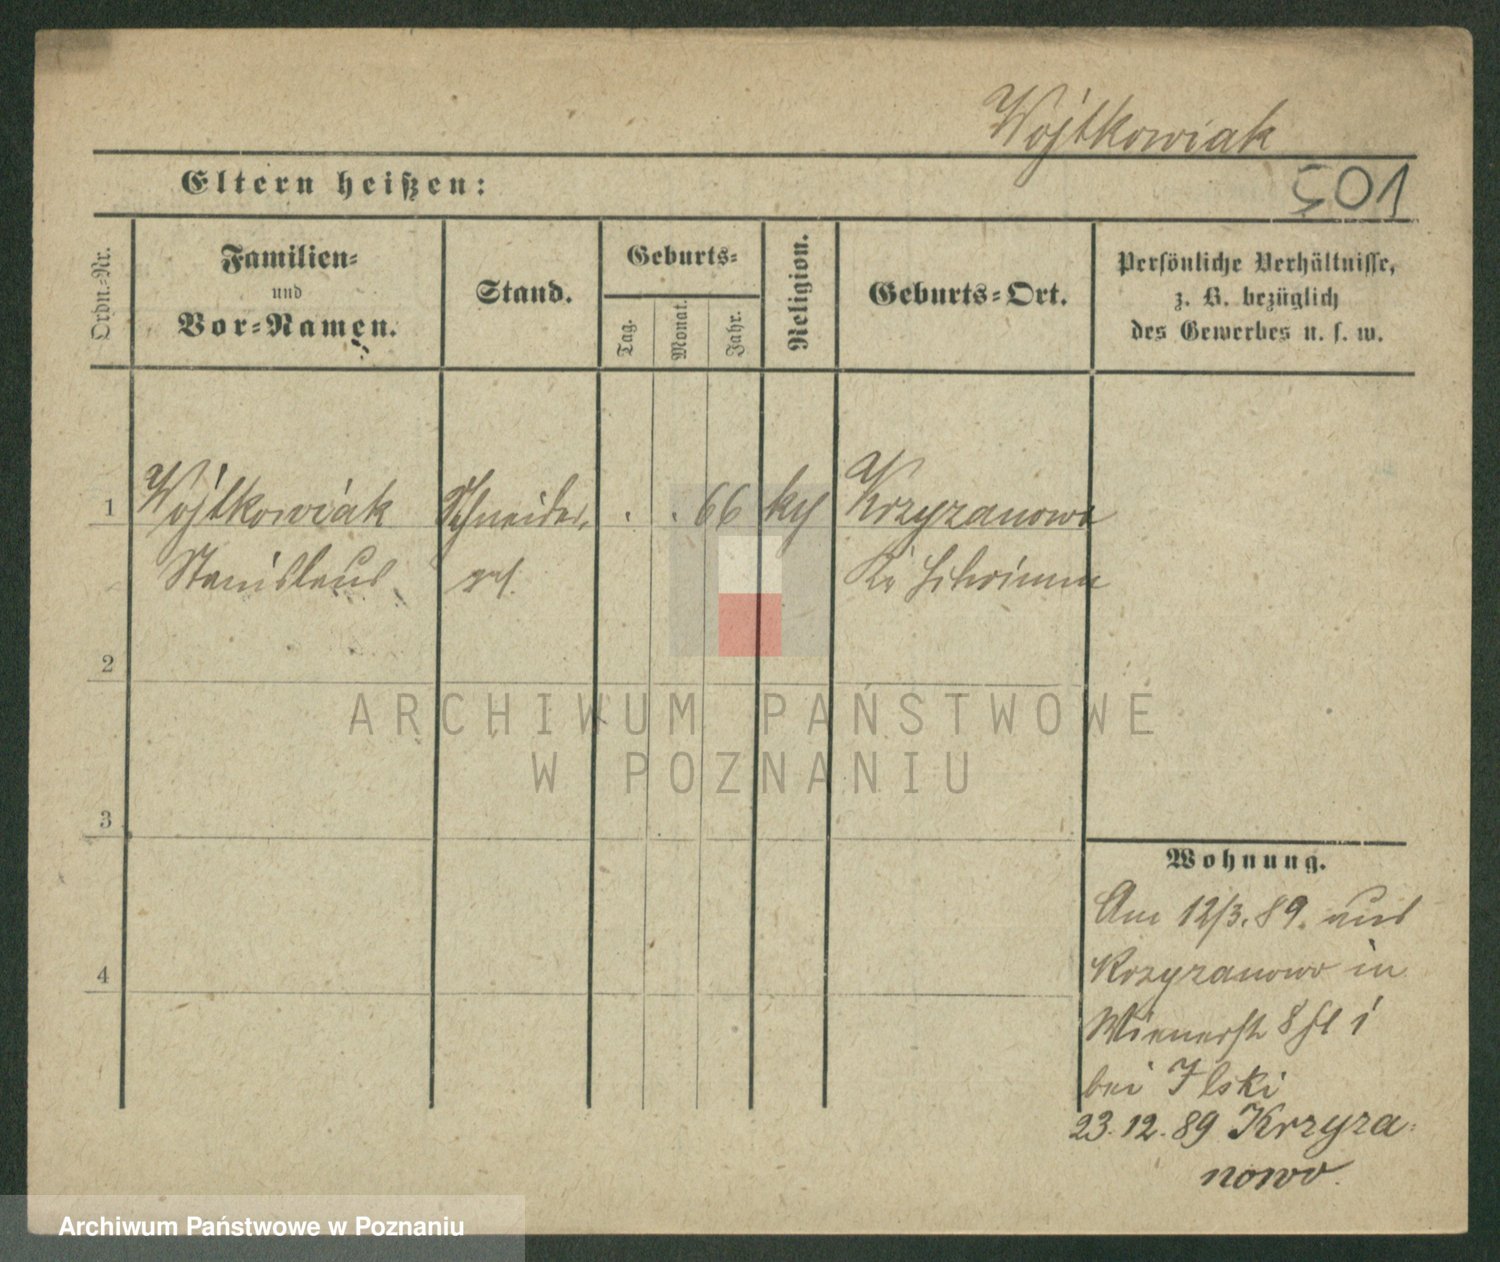 Wojtkowiak
Eltern heißen:
501
Ordn.-Nr.
Familien-
und
Vor-Namen.
Stand.
Geburts-
Tag.
Monat.
Jahr.
Religion.
Geburts-Ort.
Persönliche Verhältnisse,
z. B. bezüglich
des Gewerbes u. s. w.
1 Wojtkowiak Schneider, . . 66 kth Krzyzanowo
Stanislaus Kr Schrimm
2
ARCHIWUM PAŃSTWOWE
W POZNANIU
3
Wohnung.
Am 12/3.89. aus
Krzyzanowo in
4
Wienerstr 8
bei Ilski
23.12.89 Krzyza-
nowo.
Archiwum Państwowe w Poznaniu